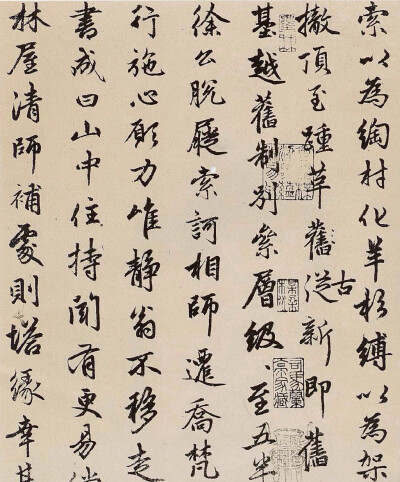 索以為綯村化羊杉縛以為架
撤頂至踵革舊從古新即舊
基越舊制別層級至五半
徐公脫屣索訶相師遷喬梵
行施心願力唯靜翁不移走
書成曰山中住持間有更易
林屋清師補處則塔緣幸